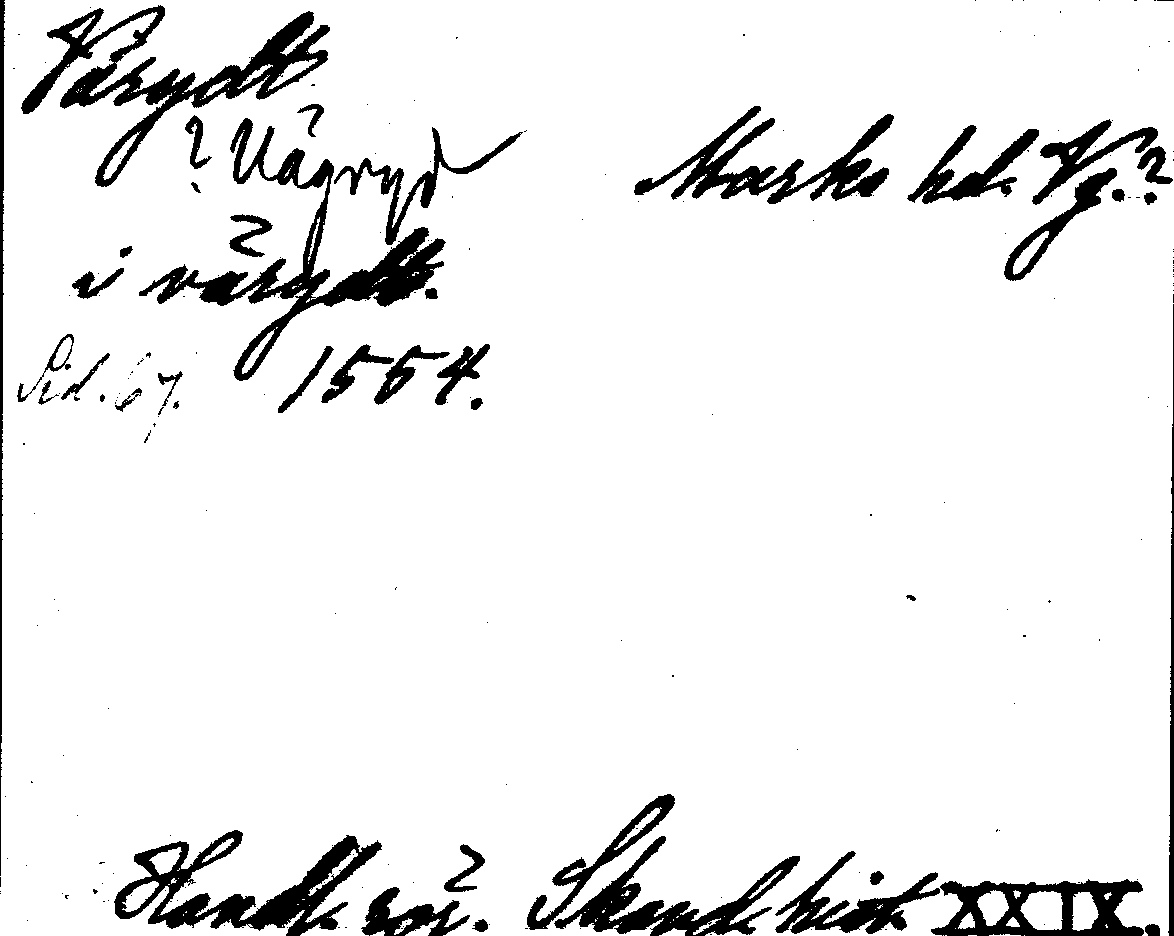 Vårydt
? Vågryd
Marks hd. Vg.?
i vårydt.
Sid. 67. 1554.
Handl. rör. Skand. hist. XXIX.